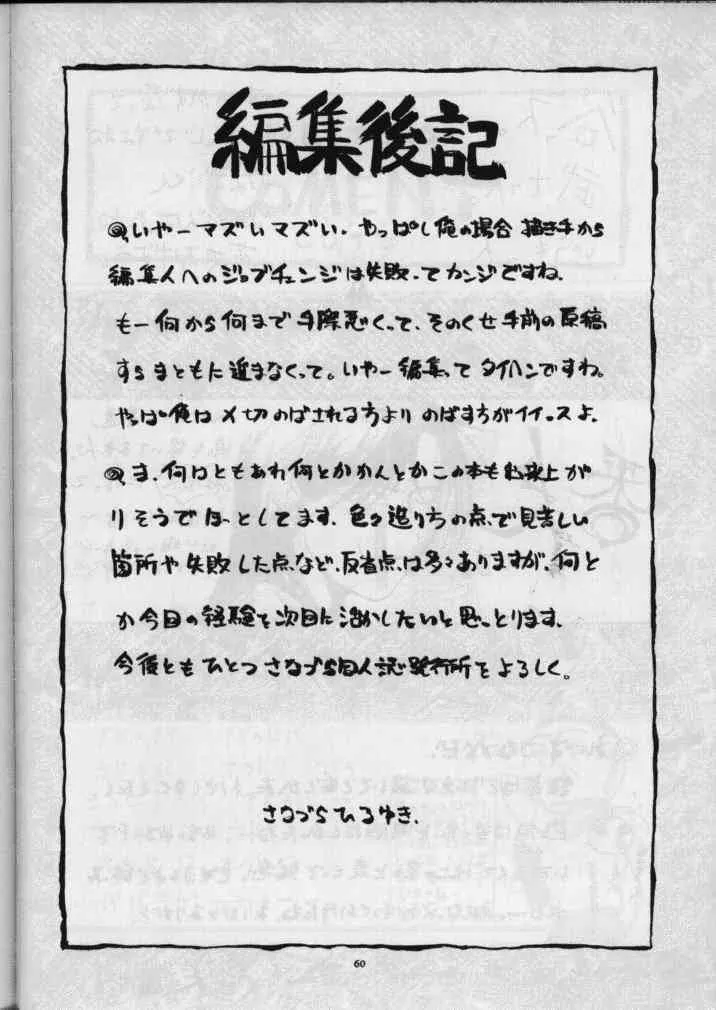 編集後記
@、いやーマズいマズい。やっぱし俺の場合 描き手から
編集人へのジョブチェンジは失敗ってカンジですね。
もー何から何まで手際悪くって、そのくせ手前の原稿
すらまともに進まなくって。いやー編集ってタイヘンですね。
やっぱ俺は〆切のばされる方より のばす方がイイっスよ。
@、ま、何はともあれ何とかかんとかこの本も出来上が
りそうでほっとしてます。色々造りの点で見苦しい
箇所や失敗した点など、反省点は多々ありますが、何と
か今回の経験を次回に活かしたいと思っとります。
今後ともひとつ さなづら同人誌発行所をよろしく。
さなづらひろゆき.
60